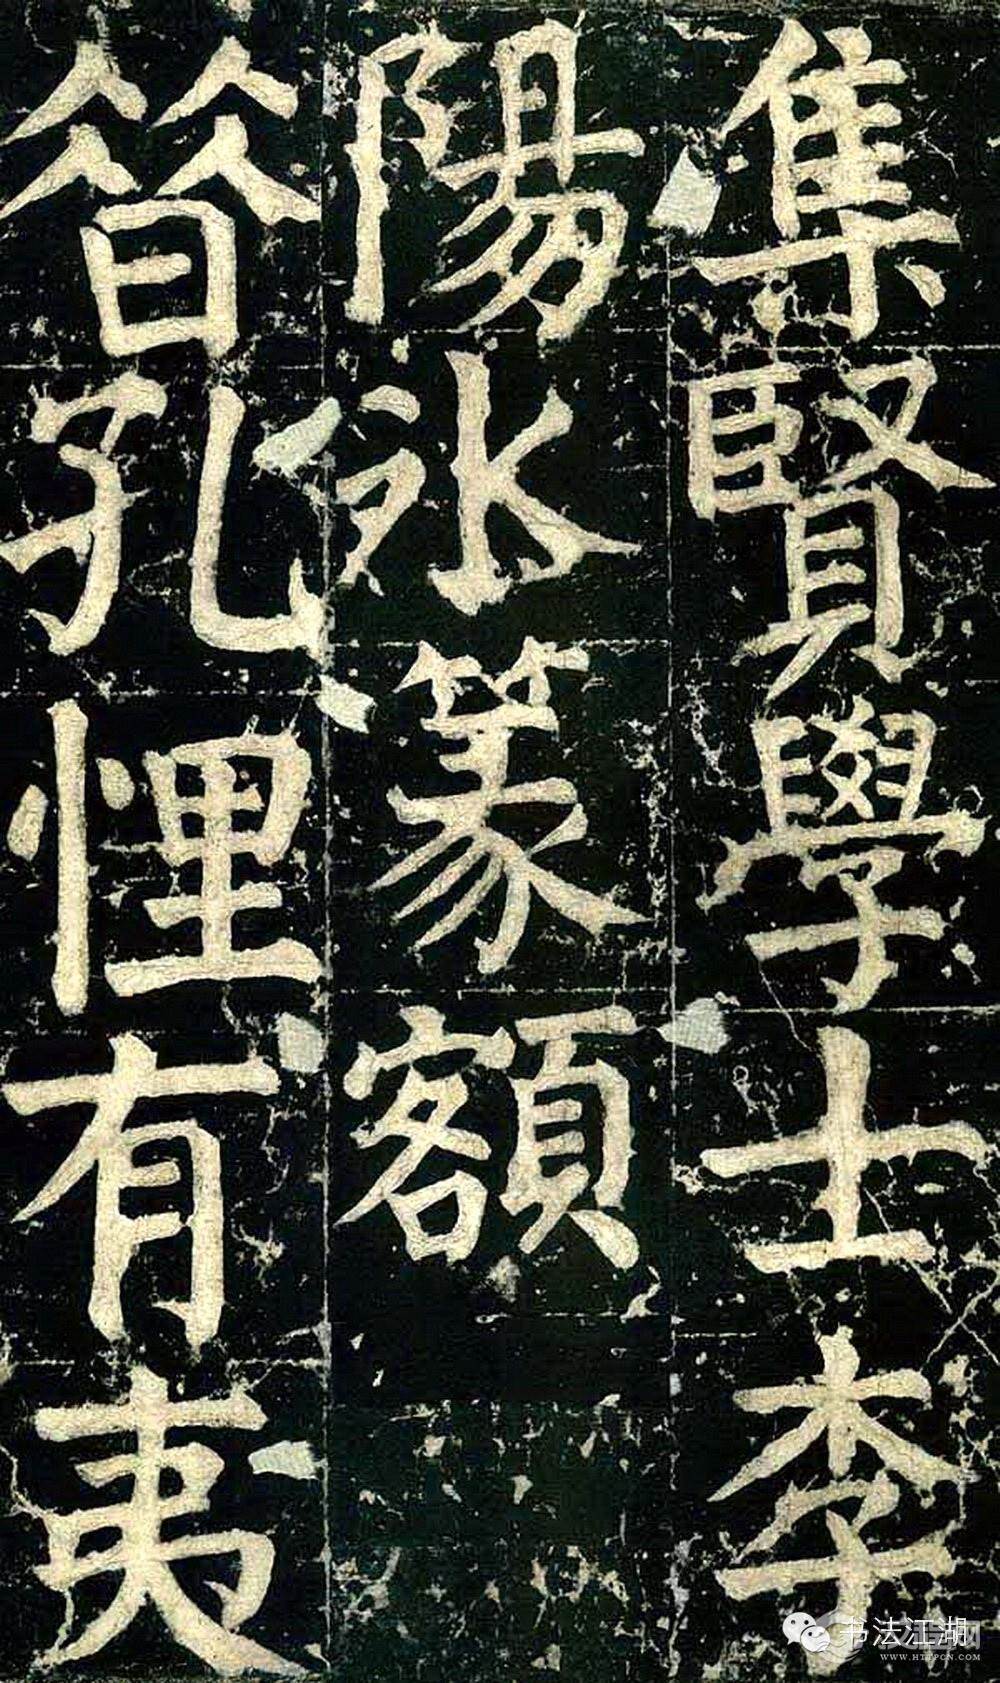 集賢學士李
陽冰篆額
㫺孔悝有夷
书法江湖
WWW.HTTPCN.COM